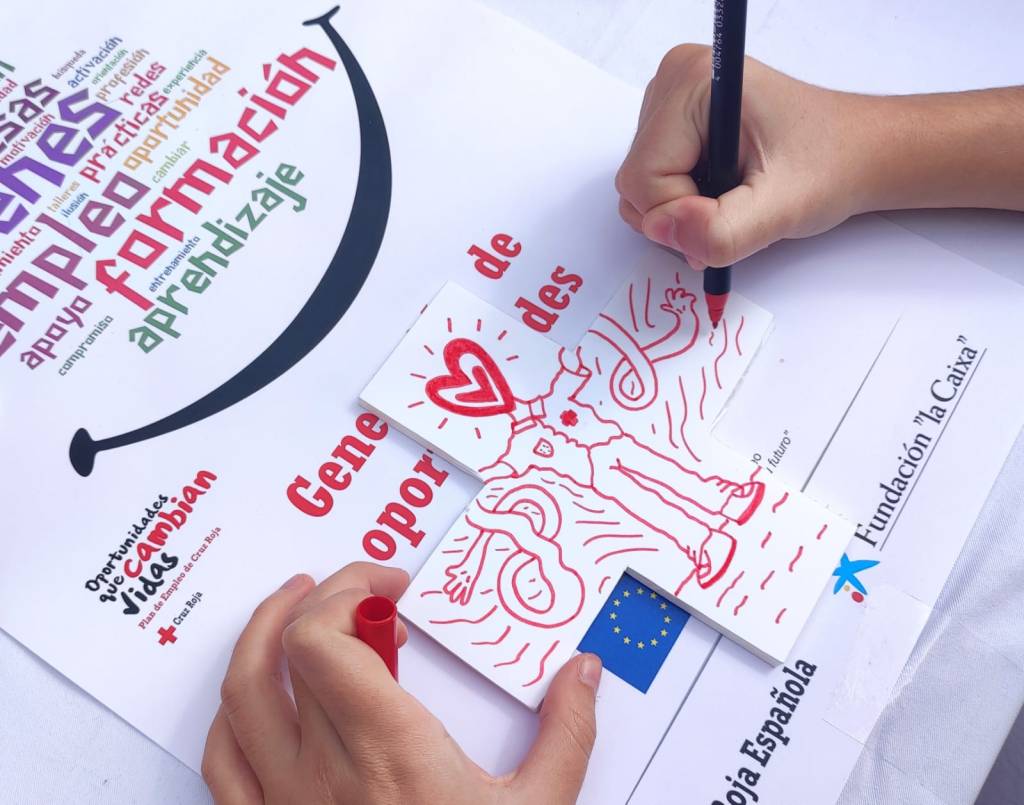 búsqueda
activación
orientación
motivación
profesión
redes
experiencia
prácticas
oportunidad
talleres
ilusión
cambiar
empleo
formación
entrenamiento
aprendizaje
apoyo
compromiso
de
des
Gene
opor
Oportunidades
que cambian
vidas
Plan de Empleo de Cruz Roja
Cruz Roja
futuro"
Fundación "la Caixa"
oja Española